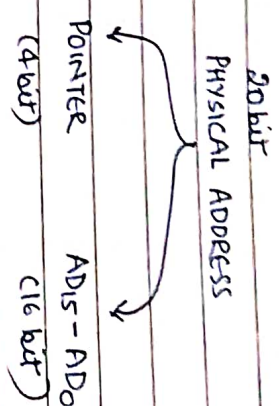 20 bit
PHYSICAL ADDRESS
POINTER
(4 bit)
AD15 - AD0
(16 bit)